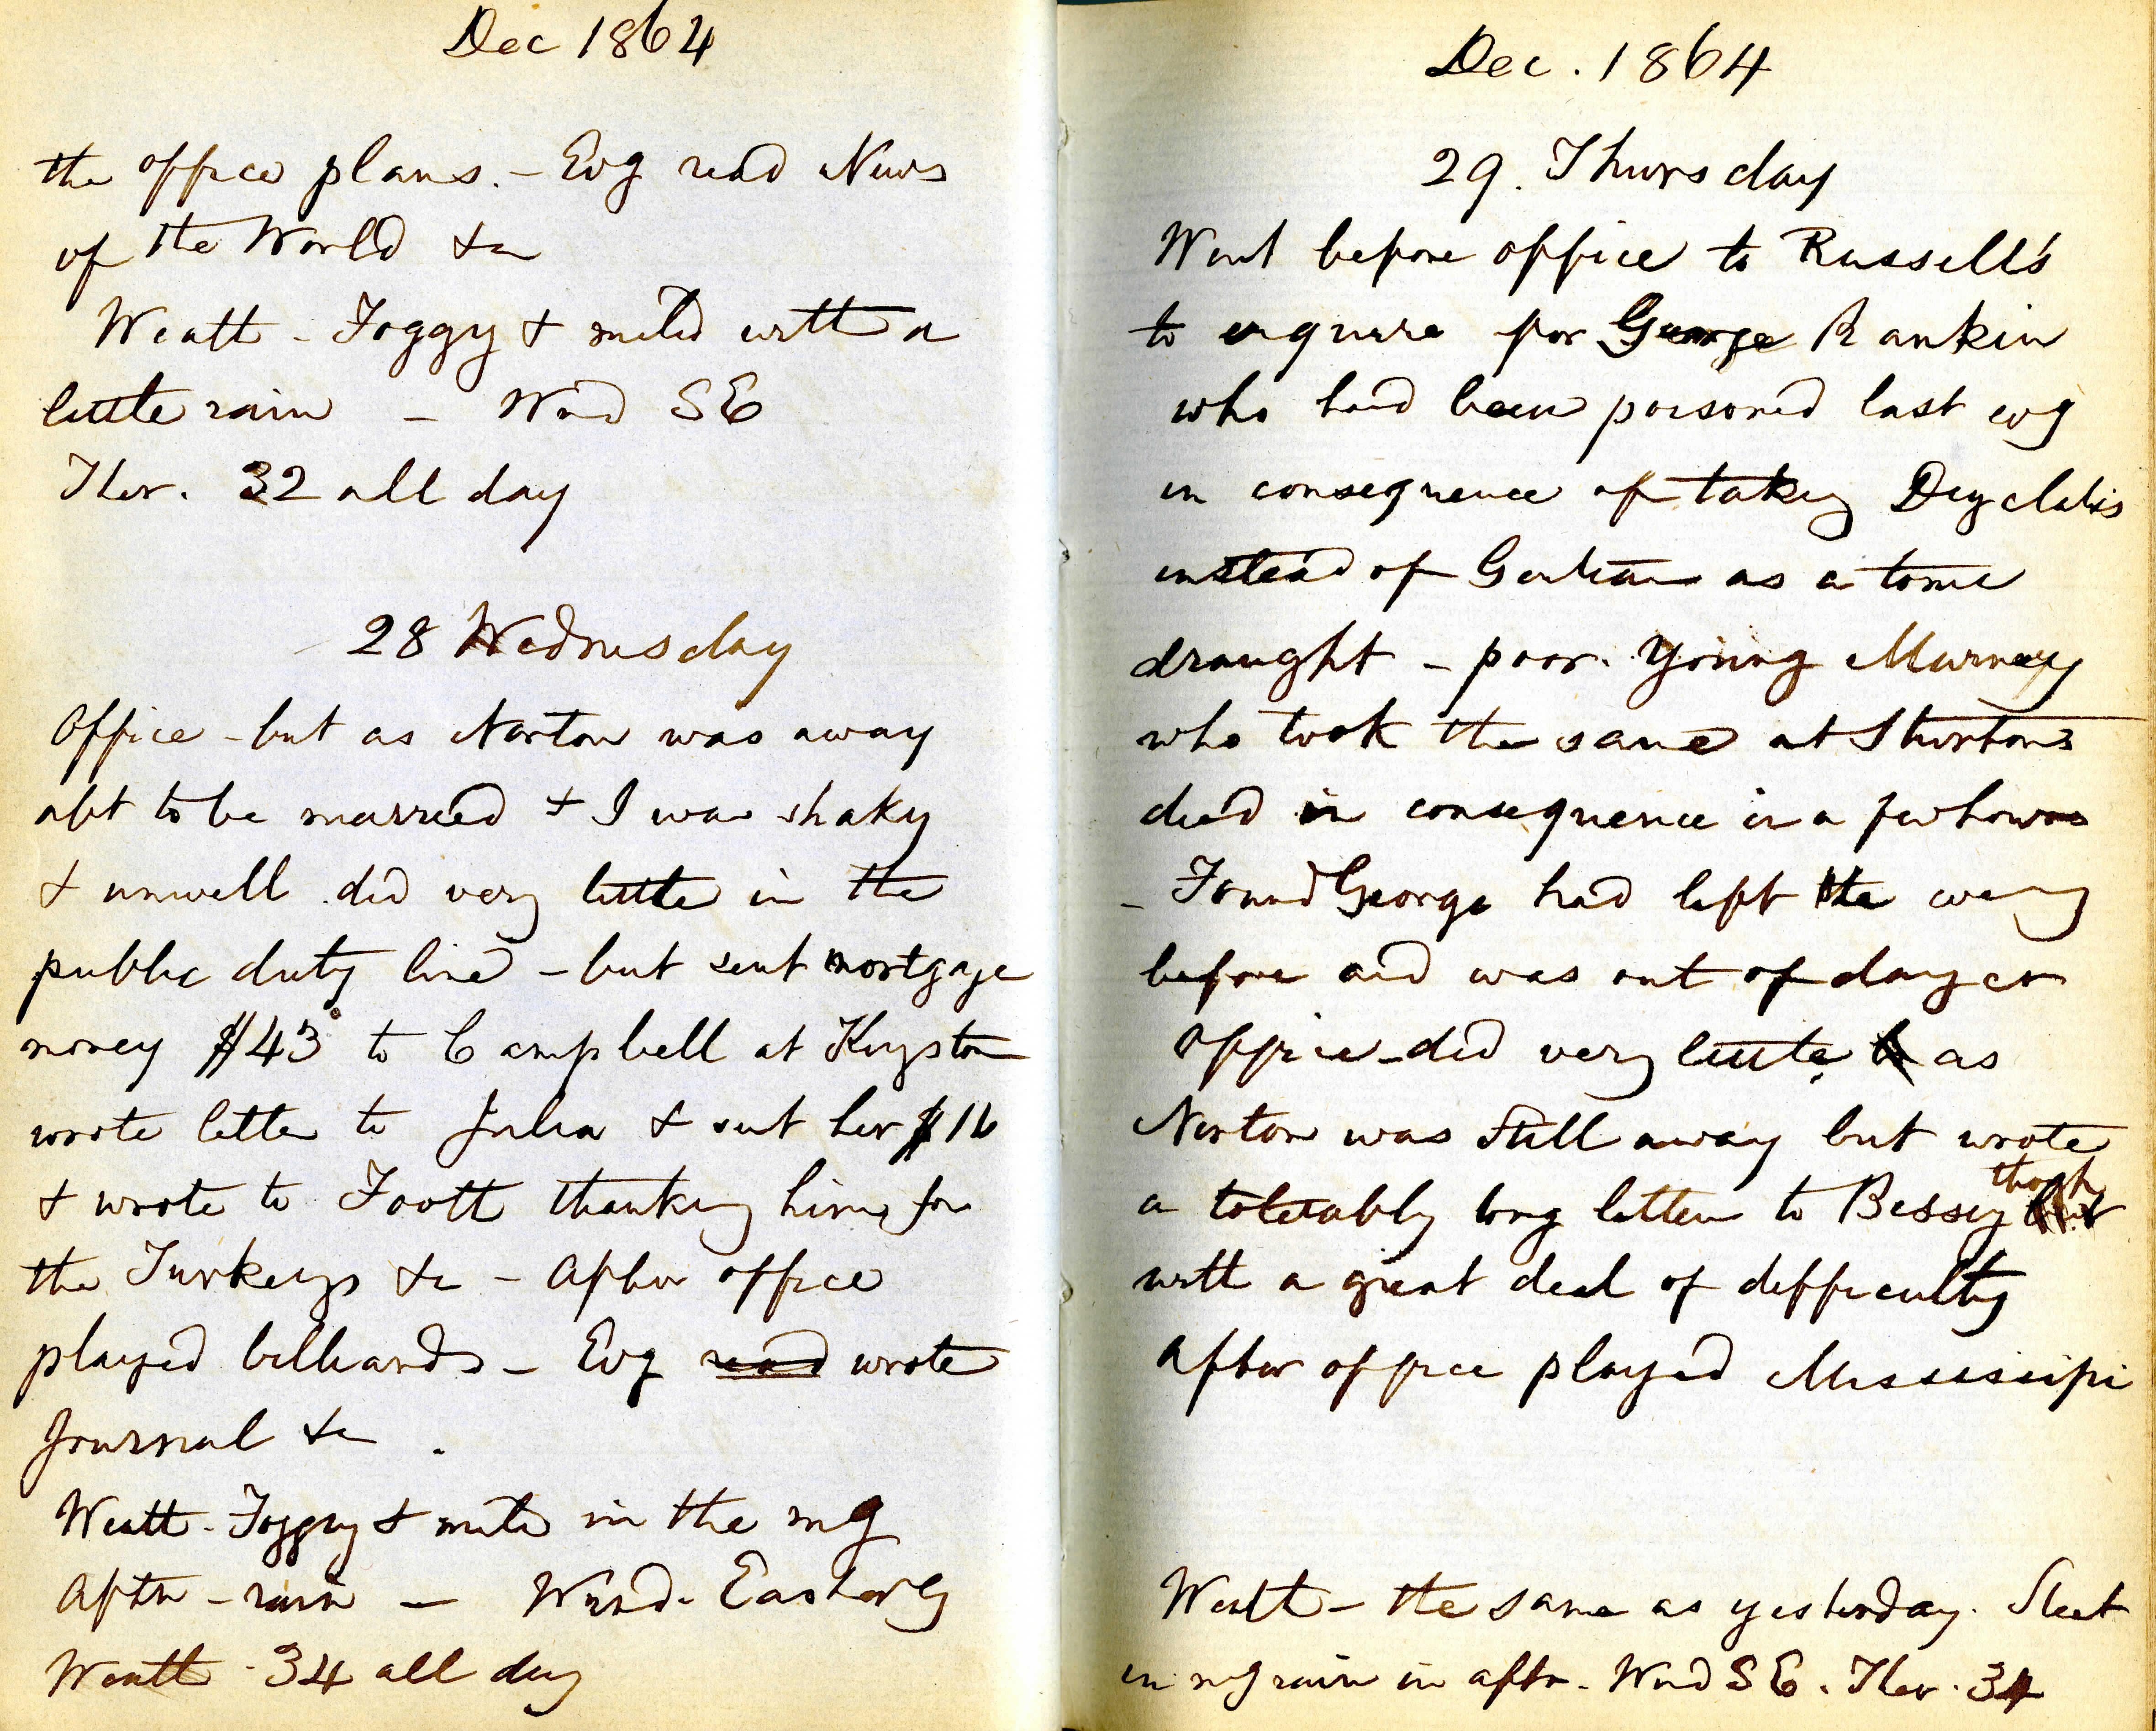 Dec 1864
the office plans. - Evg read News
of the World &c
Weath - Foggy & mild with a
little rain - Wind SE
Ther. 32 all day
28 Wednesday
Office - but as Norton was away
abt to be married & I was shaky
& unwell did very little in the
public duty line - but sent mortgage
money $43 to Campbell at Kingston
wrote letter to Julia & sent her $16
& wrote to Foott thanking him for
the Turkeys &c - After office
played billiards - Evg read wrote
Journal &c .
Weath - Foggy & mild in the mg
Aftn - rain - Wind - Easterly
Weath - 34 all day
Dec. 1864
29. Thursday
Went before office to Russell's
to enquire for George Rankin
who had been poisoned last evg
in consequence of taking Digitalis
instead of Gentian as a tonic
draught - poor young Murray
who took the same at
died in consequence in a few hours
- Found George had left the evening
before and was out of danger
Office - did very little as
Norton was still away but wrote
a tolerably long letter to Bessy though
with a great deal of difficulty
After office played Mississipi
Weath - the same as yesterday. Sleet
in mg rain in aftn. Wind SE. Ther. 34